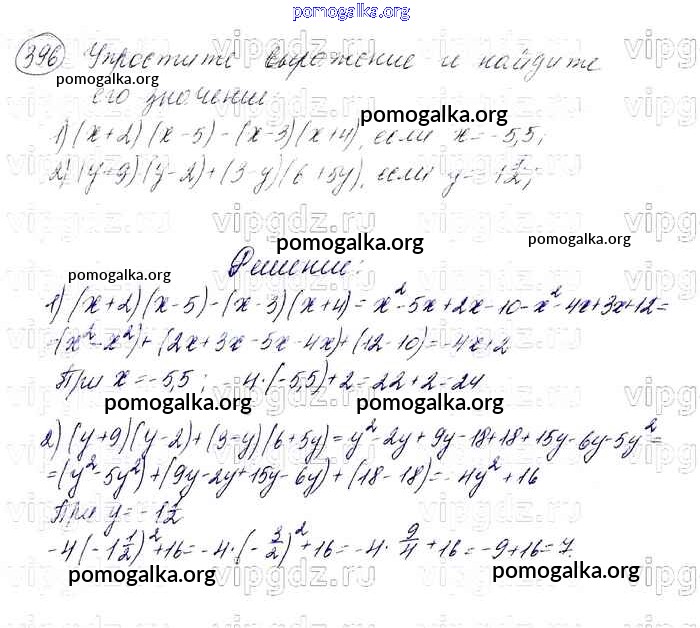 pomogalka.org
396 Упростите выражение и найдите
pomogalka.org
его значение:
pomogalka.org
1) (x+2)(x-5)-(x-3)(x+4), если x=-5,5;
2) (y+9)(y-2)+(3-y)(6+5y), если y=-1½;
pomogalka.org pomogalka.org
Решение:
pomogalka.org
1) (x+2)(x-5)-(x-3)(x+4)=x²-5x+2x-10-x²-4x+3x+12=
=(x²-x²)+(2x+3x-5x-4x)+(12-10)=-4x+2
При x=-5,5; -4·(-5,5)+2=22+2=24
pomogalka.org pomogalka.org
2) (y+9)(y-2)+(3-y)(6+5y)=y²-2y+9y-18+18+15y-6y-5y²=
=(y²-5y²)+(9y-2y+15y-6y)+(18-18)=-4y²+16
При y=-1½
-4(-1½)²+16=-4·(-3/2)²+16=-4·9/4+16=-9+16=7.
pomogalka.org pomogalka.org